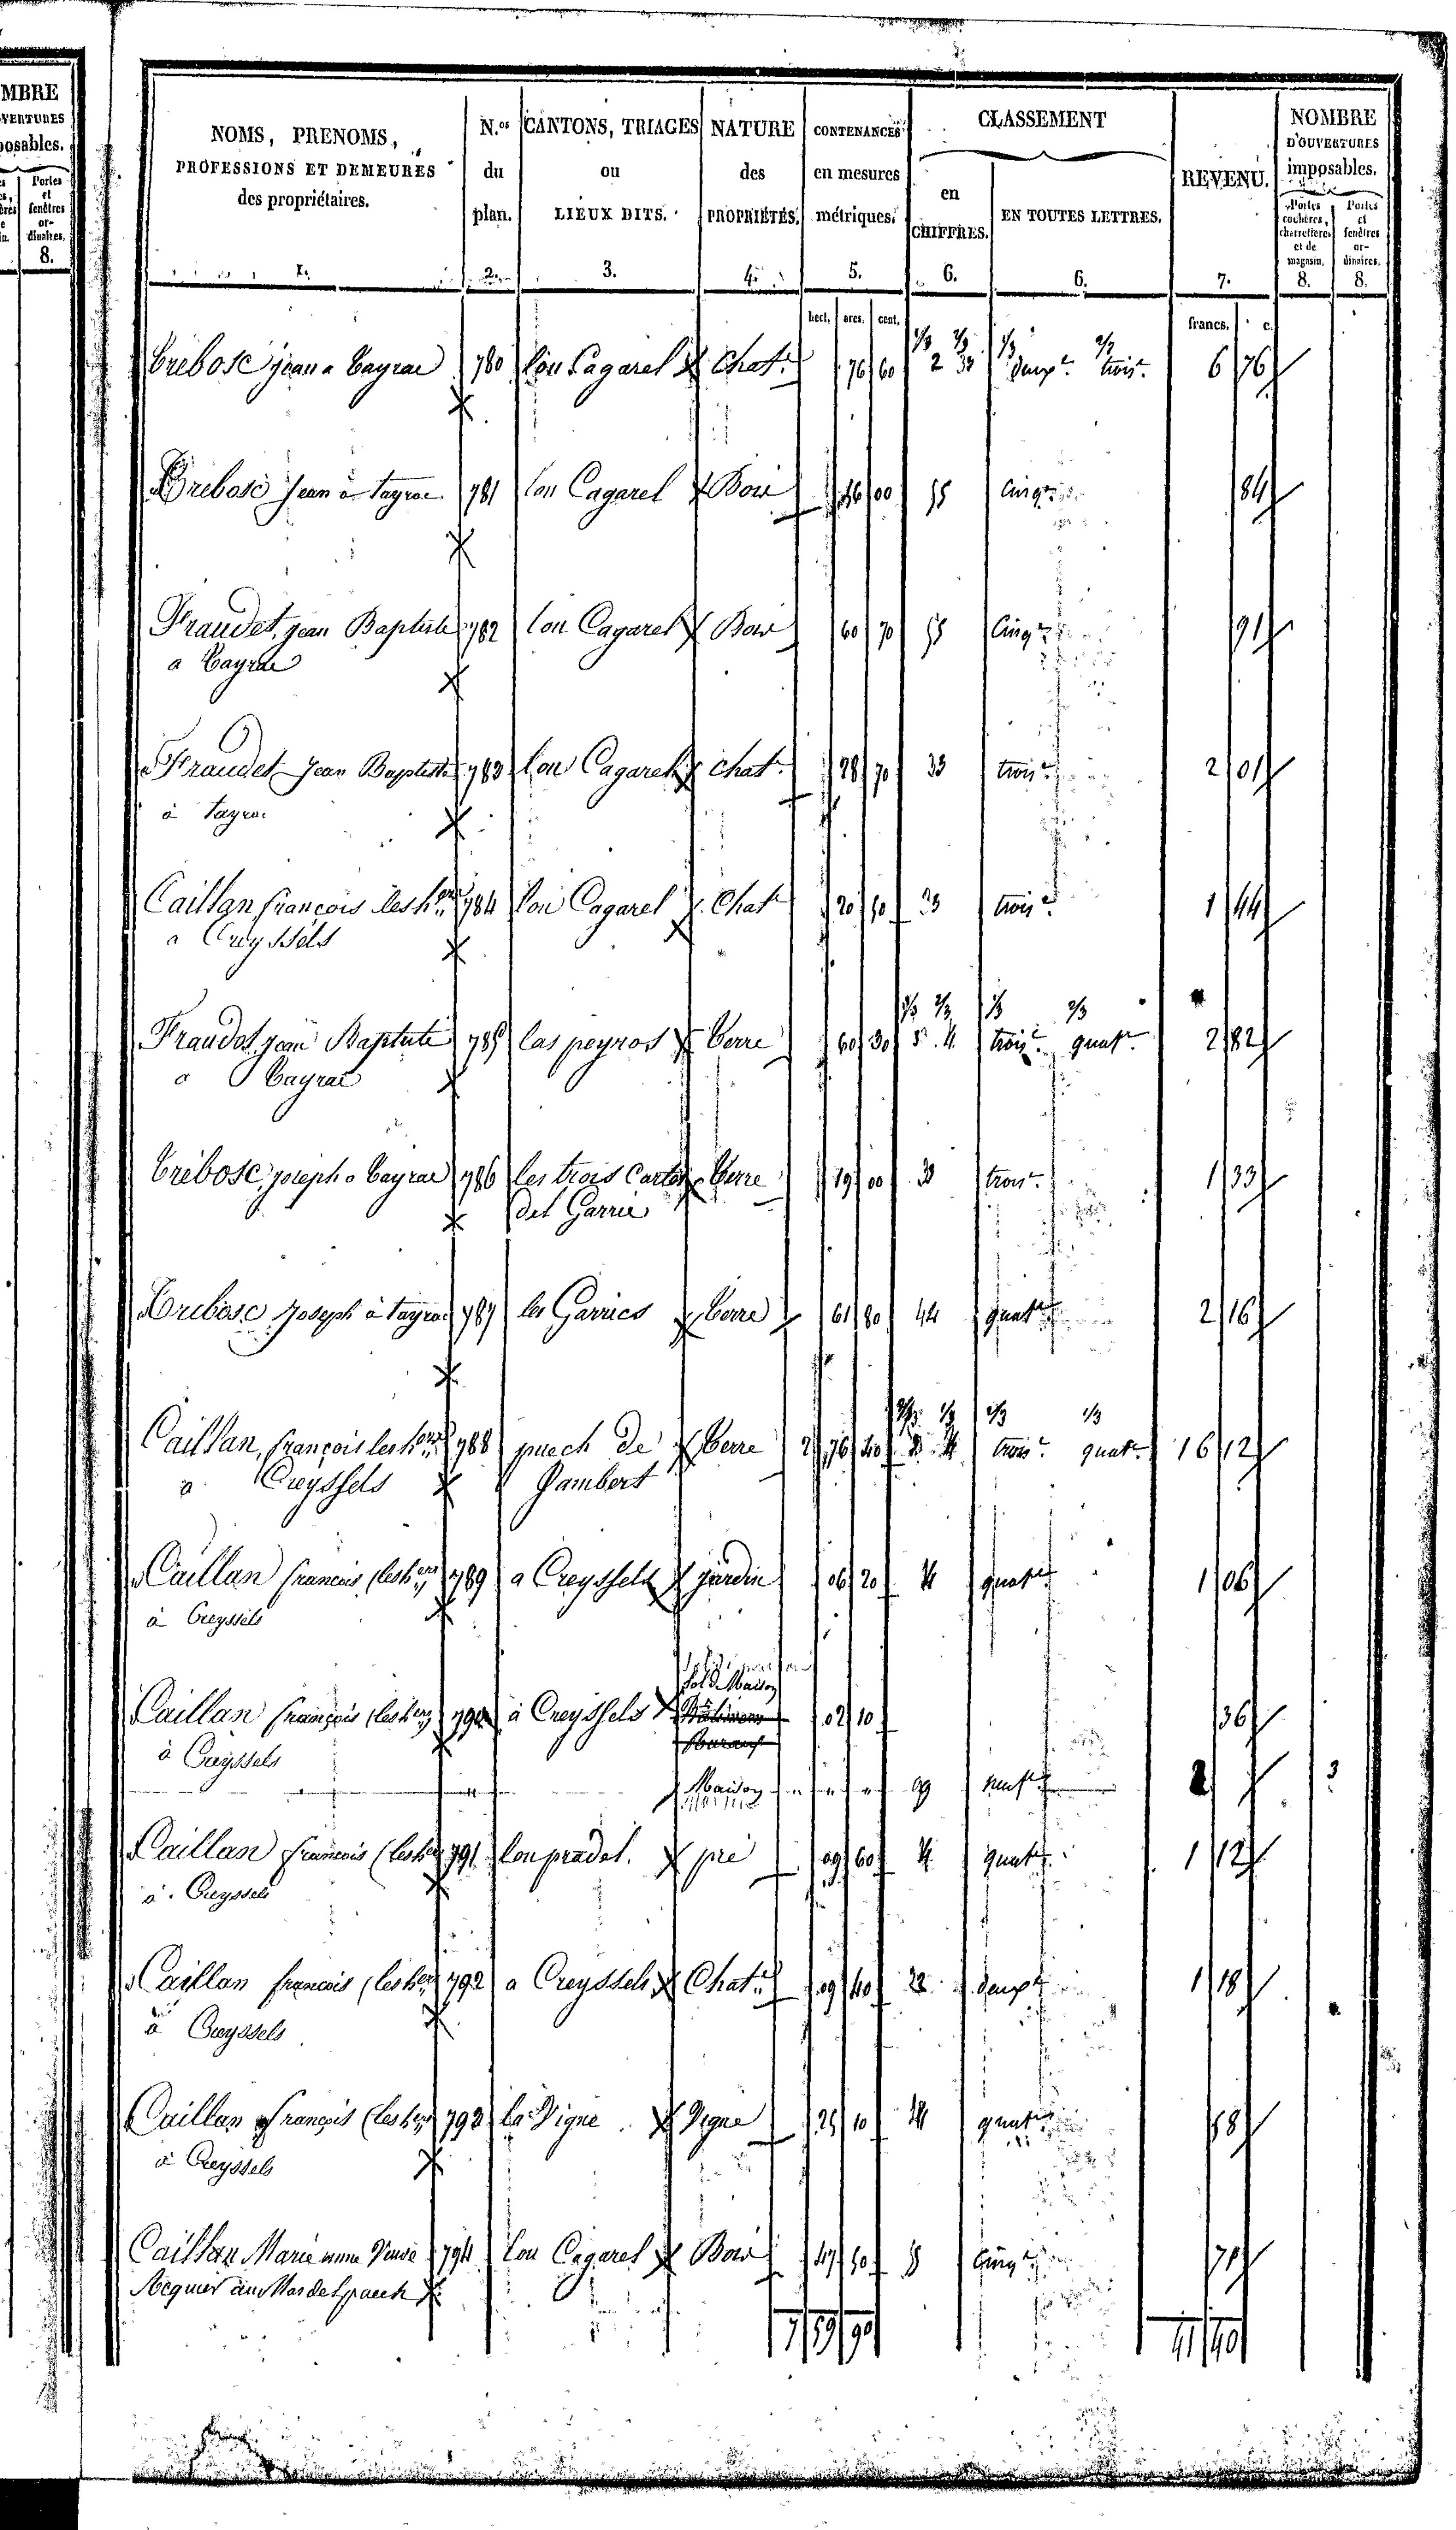 MBRE
VERTURES
posables.
Portes
et
fenêtres
or-
dinaires.
8.
NOMS, PRENOMS,
PROFESSIONS ET DEMEURES
des propriétaires.
1.
N.os
du
plan.
2.
CANTONS, TRIAGES
ou
LIEUX DITS.
3.
NATURE
des
PROPRIÉTÉS.
4.
CONTENANCES
en mesures
métriques.
5.
CLASSEMENT
en
CHIFFRES.
6.
EN TOUTES LETTRES.
6.
REVENU.
7.
NOMBRE
D'OUVERTURES
imposables.
Portes
cochères,
charretières
et de
magasin.
8.
Portes
et
fenêtres
or-
dinaires.
8.
hect. ares. cent. francs. c.
1/3 2/3 1/3 2/3
Trébosc jean a Tayrac 780 lou Cagarel chat. 76 60 2 33 deux.e trois.e 6 76
Trebosc Jean à tayrac 781 lou Cagarel Bois 56 00 55 Cinq.e 84
Fraudet, jean Baptiste 782 lou Cagarel Bois 60 70 55 Cinq.e 91
a Tayrac
Fraudet Jean Baptiste 783 lou Cagarel chat. 28 70 33 trois.e 2 01
à tayrac
Caillan françois les h.ers 784 lou Cagarel Chat 20 50 33 trois.e 1 44
a Creyssels
1/3 2/3 1/3 2/3
Fraudet jean Baptiste 785 las peyros Terre 60 30 3. 4. trois.e quat.e 2 82
a Tayrac
Trébosc joseph a Tayrac 786 les trois Cartos Terre 19 00 33 trois.e 1 33
del Garric
Trebosc Joseph à tayrac 787 les Garrics Terre 61 80 44 quat.e 2 16
2/3 1/3 2/3 1/3
Caillan, françois les h.ers 788 puech de Terre 2 76 40 3. 4 trois.e quat.e 16 12
a Creyssels Gambert
Caillan francois (les h.ers) 789 a Creyssels jardin 06 20 4 quat.e 1 06
à Creyssels
Sol d. Maison
Caillan françois (les h.ers) 790 à Creyssels Bâtiment 02 10 36
à Creyssels
" Maison " " " 99 neuf.e 2 3
Caillan francois (les h.ers 791 lou pradel. pré 09 60 4 quat.e 1 12
à Creyssels
Caillan francois (les h.ers 792 a Creyssels Chat. 09 40 22 deux.e 1 18
à Creyssels
Caillan françois (les h.ers 793 la Vigne Vigne 25 10 44 quat.e 58
à Creyssels
Caillan Marie anne Veuve 794 lou Cagarel Bois 47 50 5 Cinq.e 71
au Mas del puech
7 59 90 41 40